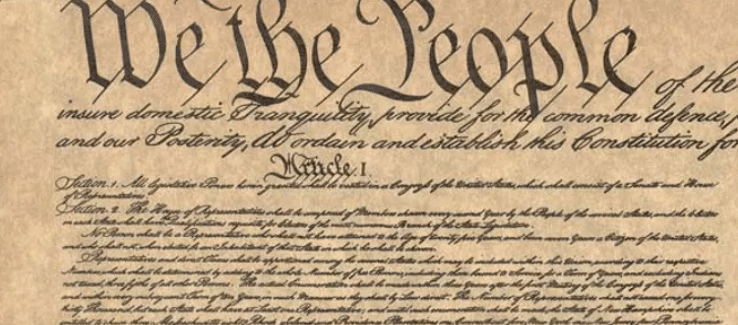 We the People of the
insure domestic Tranquility, provide for the common defence,
and our Posterity, do ordain and establish this Constitution for
Article. I.
Section. 1. All legislative Powers herein granted shall be vested in a Congress of the United States, which shall consist of a Senate and House
of Representatives.
Section. 2. The House of Representatives shall be composed of Members chosen every second Year by the People of the several States, and the Electors
in each State shall have Qualifications requisite for Electors of the most numerous Branch of the State Legislature.
No Person shall be a Representative who shall not have attained to the Age of twenty five Years, and been seven Years a Citizen of the United States,
and who shall not, when elected, be an Inhabitant of that State in which he shall be chosen.
Representatives and direct Taxes shall be apportioned among the several States which may be included within this Union, according to their respective
Numbers, which shall be determined by adding to the whole Number of free Persons, including those bound to Service for a Term of Years, and excluding Indians
not taxed, three fifths of all other Persons. The actual Enumeration shall be made within three Years after the first Meeting of the Congress of the United States,
and within every subsequent Term of ten Years, in such Manner as they shall by Law direct. The Number of Representatives shall not exceed one for every
thirty Thousand, but each State shall have at Least one Representative; and until such enumeration shall be made, the State of New Hampshire shall be